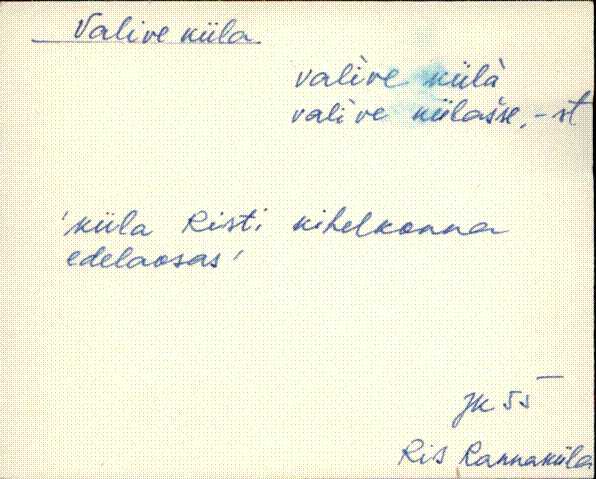 Valive küla
valìve külà
valìve külasse, -st
'küla Risti kihelkonna
edelaosas'
JK 55
Ris Rannaküla